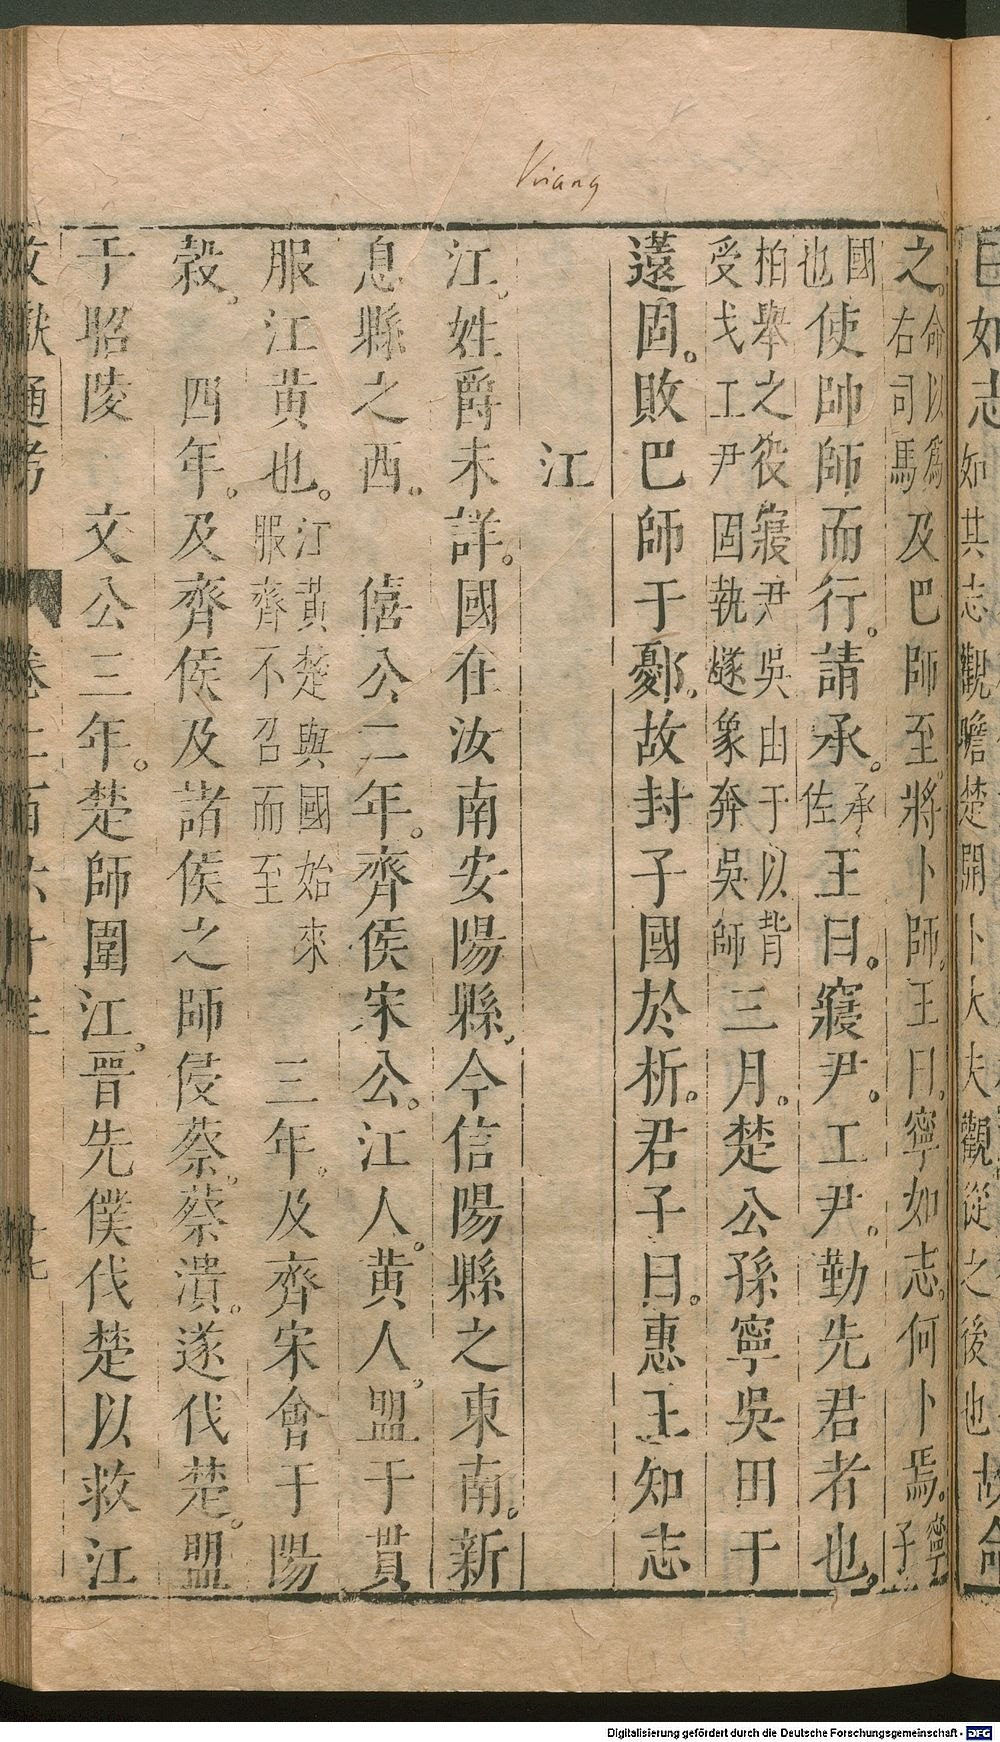 Kiang
如志如其志觀瞻楚開卜大夫觀從之後也故命
之命以爲右司馬及巴師至將卜師王曰寧如志何卜焉寧子
國也使帥師而行請承承佐王曰寢尹工尹勤先君者也
柏舉之役寢尹吳由于以背受戈工尹固執燧象奔吳師三月楚公孫寧吳田于
薳固敗巴師于鄾故封子國於析君子曰惠王知志
江
江姓爵未詳國在汝南安陽縣今信陽縣之東南新
息縣之西 僖公二年齊侯宋公江人黄人盟于貫
服江黄也江黄楚與國始來服齊不召而至 三年及齊宋會于陽
穀 四年及齊侯及諸侯之師侵蔡蔡潰遂伐楚盟
于昭陵 文公三年楚師圍江晉先僕伐楚以救江
文獻通考 卷二百六十三 廿七
Digitalisierung gefördert durch die Deutsche Forschungsgemeinschaft - DFG